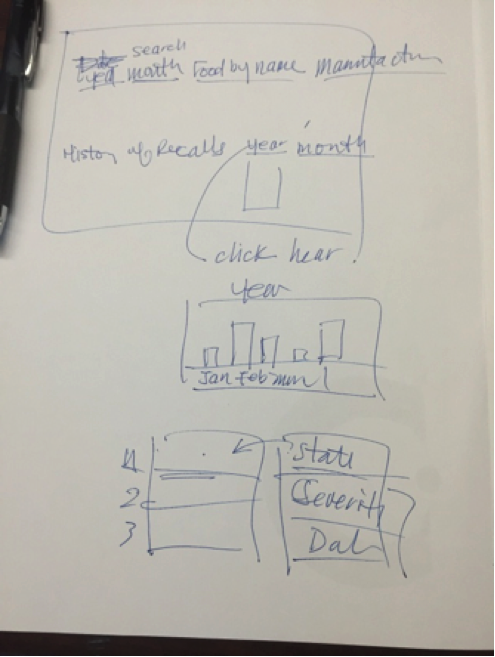 search
year month Food by name Manufactur
History of Recalls year month
click hear
year
Jan Feb
1
2
3
State
Severity
Dat